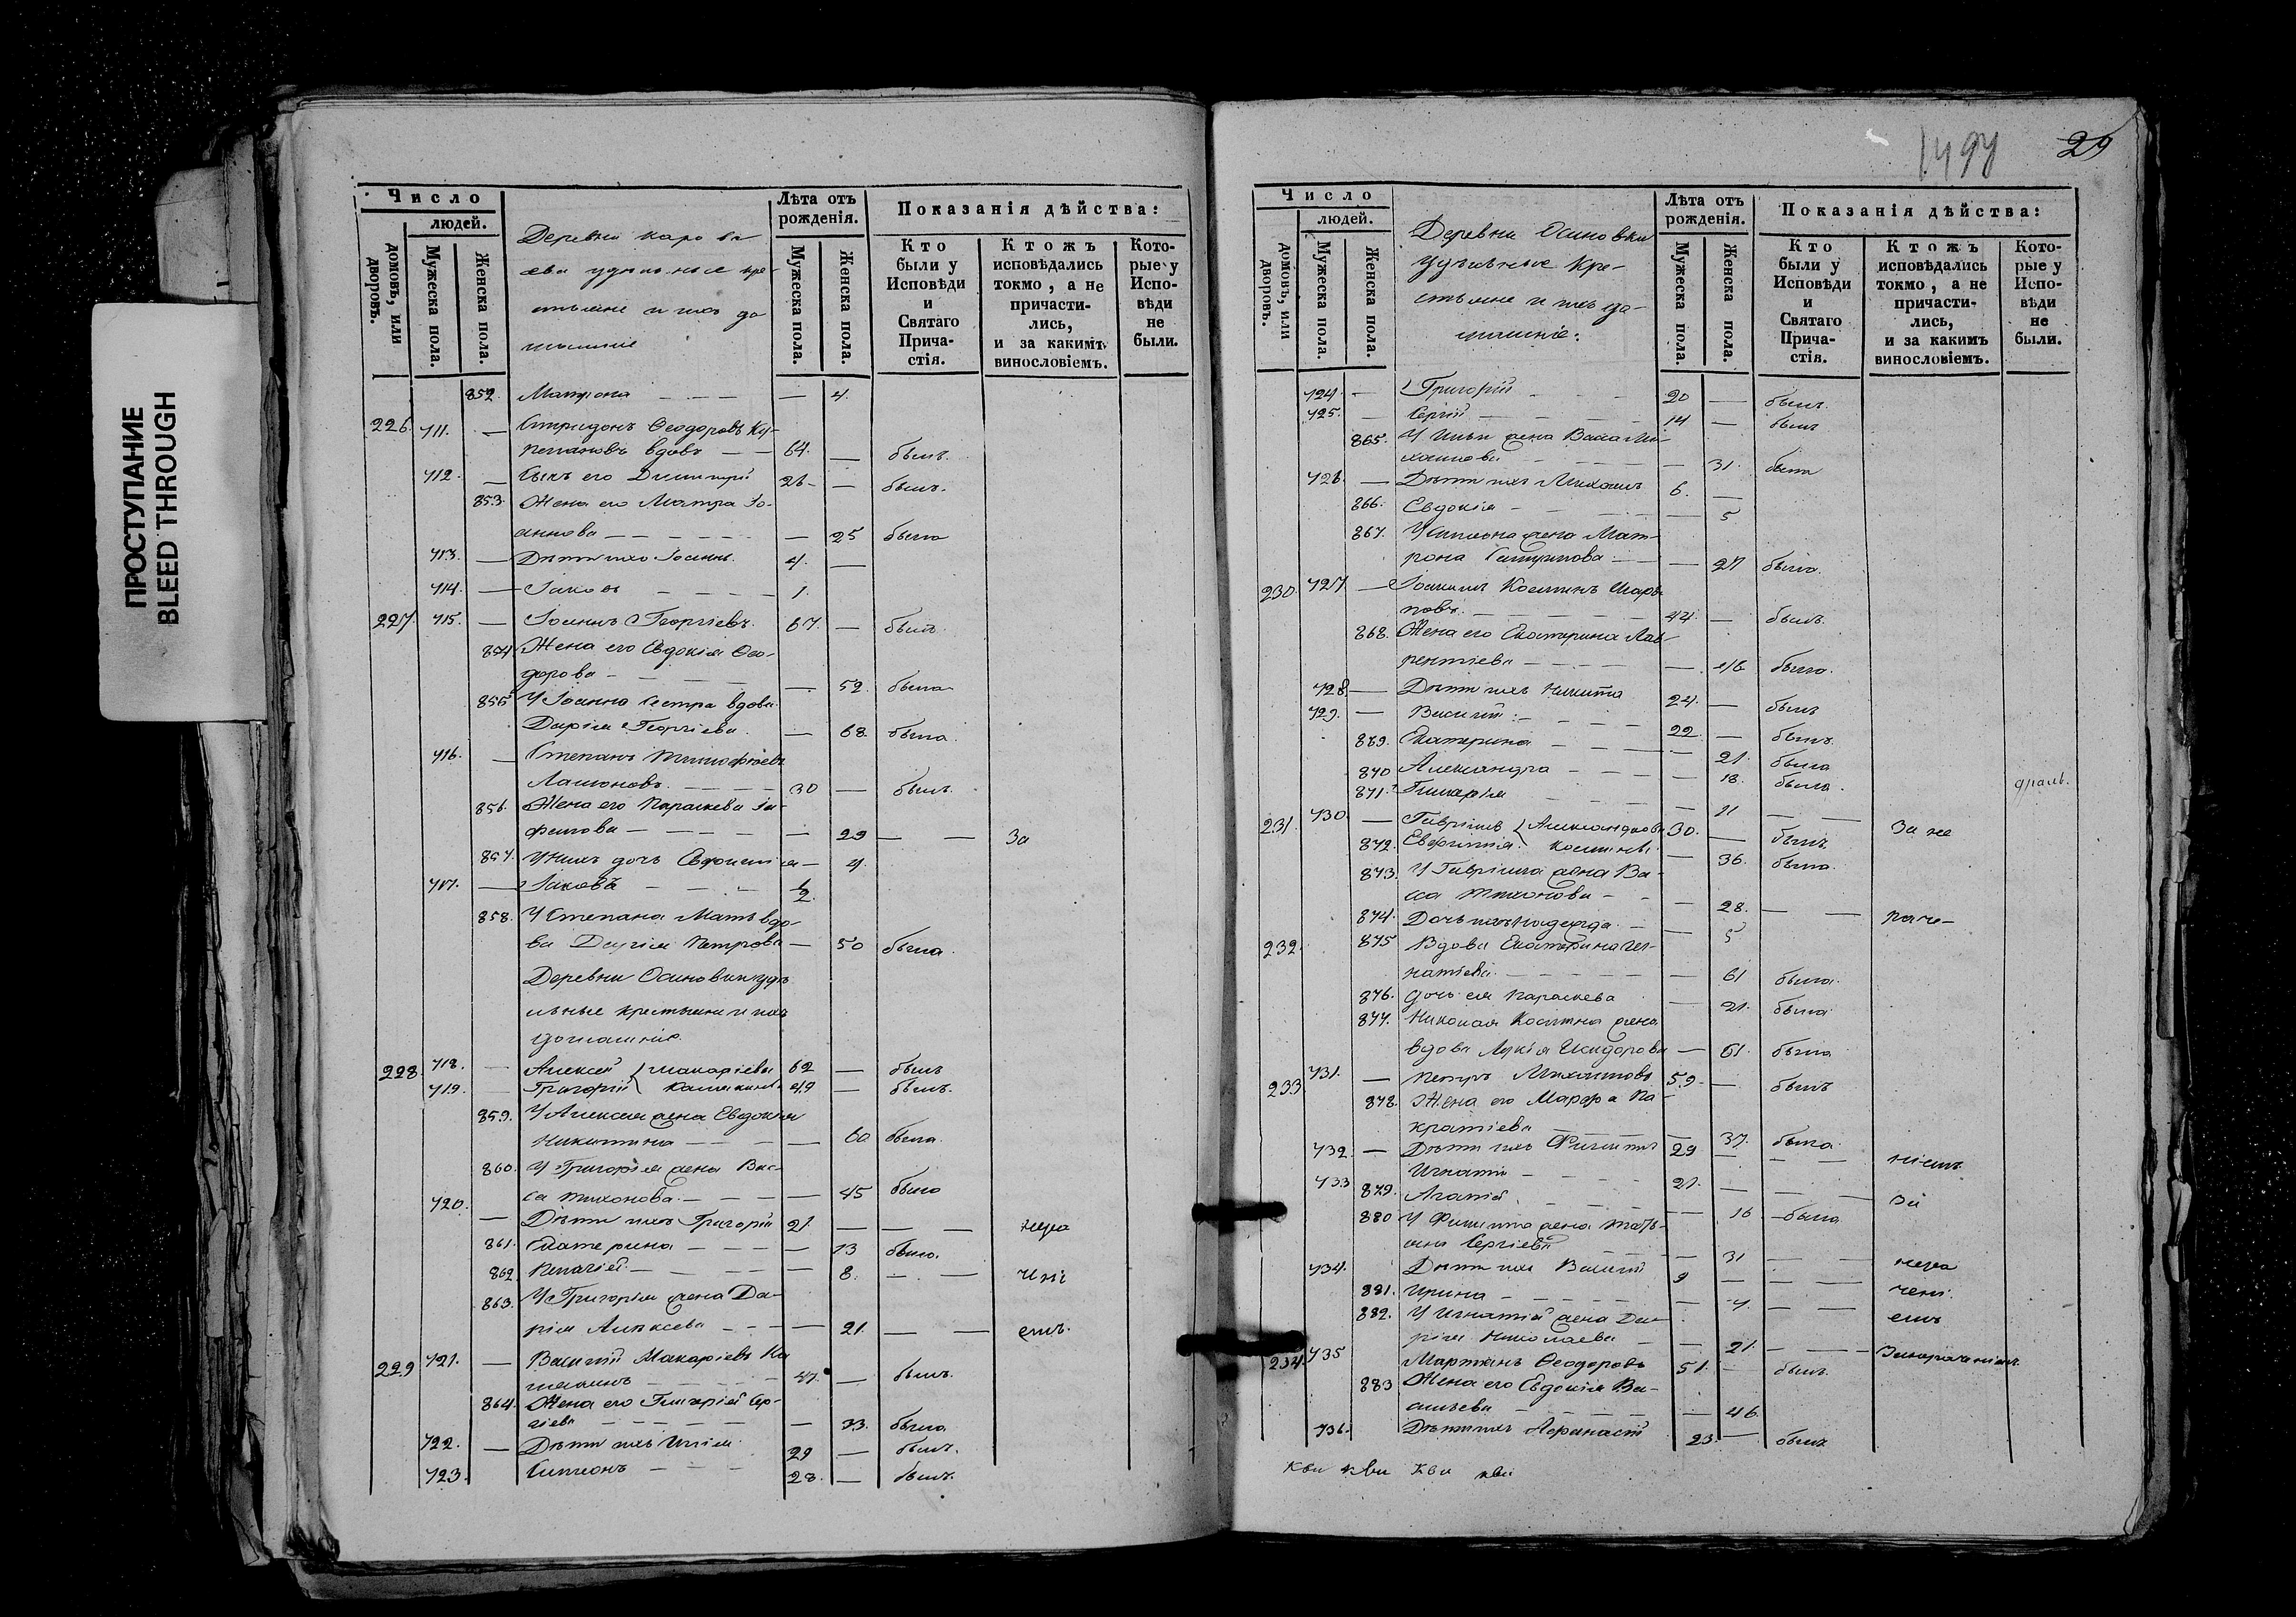 ПРОСТУПАНИЕ
BLEED THROUGH
Число
людей.
домовъ, или дворовъ.
Мужеска пола.
Женска пола.
Деревни
удѣльные кре-
стьяне и ихъ до
машніе
Лѣта отъ рожденія.
Мужеска пола.
Женска пола.
Показанія дѣйства:
Кто были у Исповѣди и Святаго Прича-стія.
Ктожъ исповѣдались токмо, а не причасти-лись, и за какимъ винословіемъ.
Кото-рые у Испо-вѣди не были.
852. Матрона — 4.
226. 711. — Спиридонъ Ѳеодоровъ
вдовъ — 64. — былъ.
712. — Сынъ его Димитрій 26 — былъ.
853. Жена его Іо-
аннова — 25 была
713. — Дѣти ихъ Іоаннъ 4. —
714. — Іаковъ 1.
227. 715. — Іоаннъ Георгіевъ. 67. — былъ.
854 Жена его Евдокія Ѳео-
дорова — 52. была
855 У Іоанна сестра вдова
Дарія Георгіева. — 68. была.
716. — Степанъ Тимофѣевъ
30 — былъ.
856. Жена его Параскева
— 29 — — За
857. У нихъ дочь Евфимія — 4.
717. — Іаковъ 1/2
858. У Степана мать вдо-
ва Дарія Петрова — 50 была.
Деревни Осиновки удѣ
льные крестьяне и ихъ
домашніе
228. 718. — Алексей Макаріевы 62 — былъ
719. Григорій 49 — былъ.
859. У Алексея жена Евдокія
Никитина — 60 была.
860. У Григорія жена Вас-
са Тихонова — 45 была
720. — Дѣти ихъ Григорій 21. — — — нера
861. Екатерина — 13 была.
862 Пелагія — 8. — — чені
863. У Григорія жена Да-
рія Алексева — 21. — — емъ.
229 721. — Василій Макаріевъ Ка
47. — былъ.
864. Жена его Гликерія Сер-
гіева — 33. была
722. — Дѣти ихъ Илія 29 — былъ.
723. Симеонъ 28. — былъ.
1497
29
Число
людей.
домовъ, или дворовъ.
Мужеска пола.
Женска пола.
Деревни Осиновки
Удѣльные Кре-
стьяне и ихъ до-
машніе:
Лѣта отъ рожденія.
Мужеска пола.
Женска пола.
Показанія дѣйства:
Кто были у Исповѣди и Святаго Прича-стія.
Ктожъ исповѣдались токмо, а не причасти-лись, и за какимъ винословіемъ.
Кото-рые у Испо-вѣди не были.
724. — Григорій 20 — былъ.
725. — Сергій 14 — былъ
865. У Ильи жена Васса Ми-
хаилова — 31. была
726. — Дѣти ихъ Михаилъ 6. —
866. Евдокія — 5
867. У Симеона жена Мат-
рона — 27 была.
230. 727 — Іоакимъ Косминъ
44. — былъ.
868. Жена его Екатерина Лав-
рентіева — 46 была.
728. — Дѣти ихъ Никита 24. — былъ
729. — Василій 22. — былъ.
869. Екатерина — 21. была
870 Александра — 18. была.
871. Гликерія — 11 — —
231. 730. — Гавріилъ Александровы 30. — былъ За не
872. Евфимія — 36. была.
873. У Гавріила жена Ва-
сса Тихонова — 28. — — раче-
874. Дочь ихъ Надежда. — 5
232. 875 Вдова Екатерина Иг-
натіева. — 61 была.
876. Дочь ея Параскева — 21. была
877. Николая Космина жена
вдова Лукія Исидорова — 61. была
233 731. — Петръ Михаиловъ 59. — былъ
878. Жена его Марфа Па-
кратіева — 37. была.
732. — Дѣти ихъ Филиппъ 29 — — ніемъ
733 Игнатій 21. — — За
879. Агапія — 16 — была
880 У Филиппа жена Татьь-
яна Сергіева — 31 — — нера
734. Дѣти ихъ Василій 9 — — чені
881. Ирина — 4. — —
882. У Игнатія жена Да-
рія Николаева — 21. — — емъ
234 735 Мартинъ Ѳеодоровъ 51. — былъ. Занераченіемъ
883 Жена его Евдокія Ва-
сильева — 46.
736. Дѣти ихъ Афанасій 23. — былъ